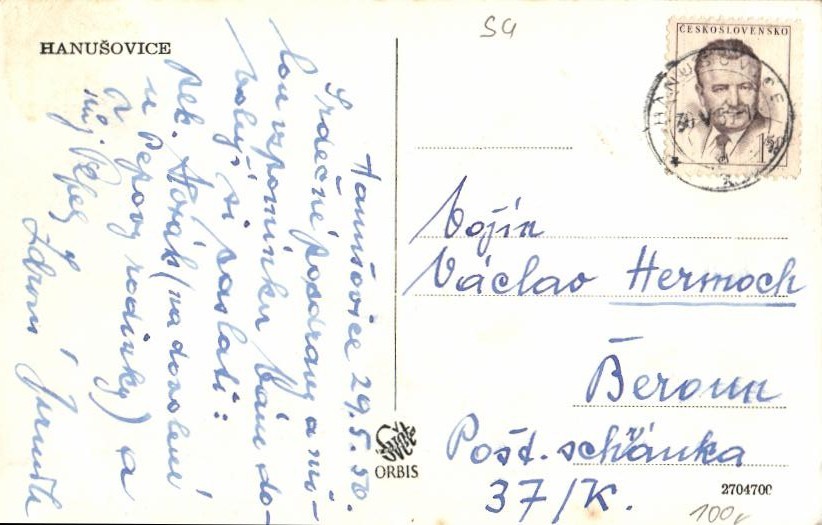 HANUŠOVICE
Hanušovice 29.5.50.
Srdečné pozdravy a mi-
lou vzpomínku Vám do-
volují si zaslati:
Bek. Horák (na dovolené
u Pepovy rodinky) a
můj Pepej
Zdraví
S4
ČESKOSLOVENSKO
1.50
HANUŠOVICE
Vojín
Václav Hermoch
Beroun
Pošt. schránka
37/K.
Svět
ORBIS
2704700
100,